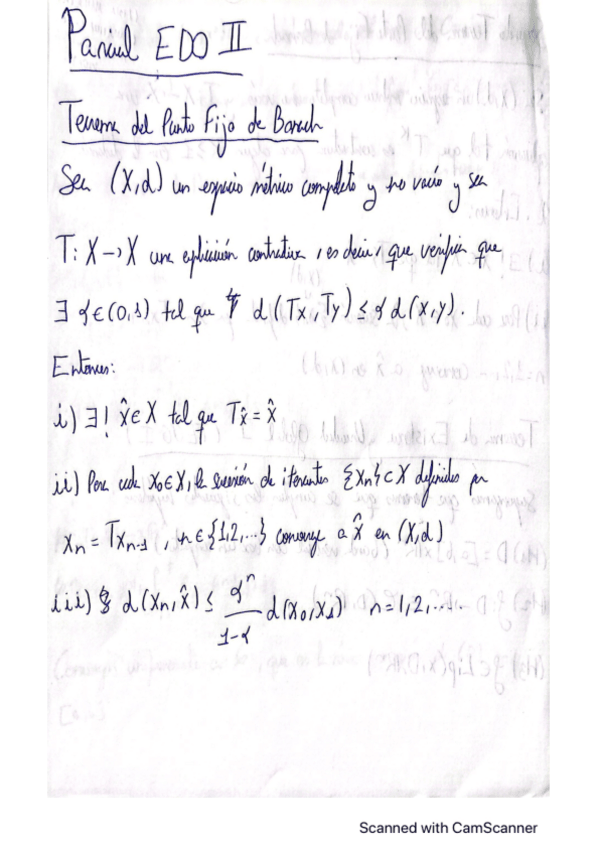 Parcial EDO II
Teorema del Punto Fijo de Banach
Sea (X,d) un espacio métrico completo y no vacío y sea
T: X → X una aplicación contractiva, es decir, que verifica que
∃ α∈(0,1) tal que d(Tx,Ty) ≤ α d(x,y).
Entonces:
i) ∃! x̂∈X tal que Tx̂ = x̂
ii) Para cada x₀∈X, la sucesión de iterantes {xₙ}⊂X definidos por
xₙ = Txₙ₋₁, n∈{1,2,...} converge a x̂ en (X,d)
iii) d(xₙ,x̂) ≤ αⁿ/(1-α) d(x₀,x₁) n=1,2,...
Scanned with CamScanner